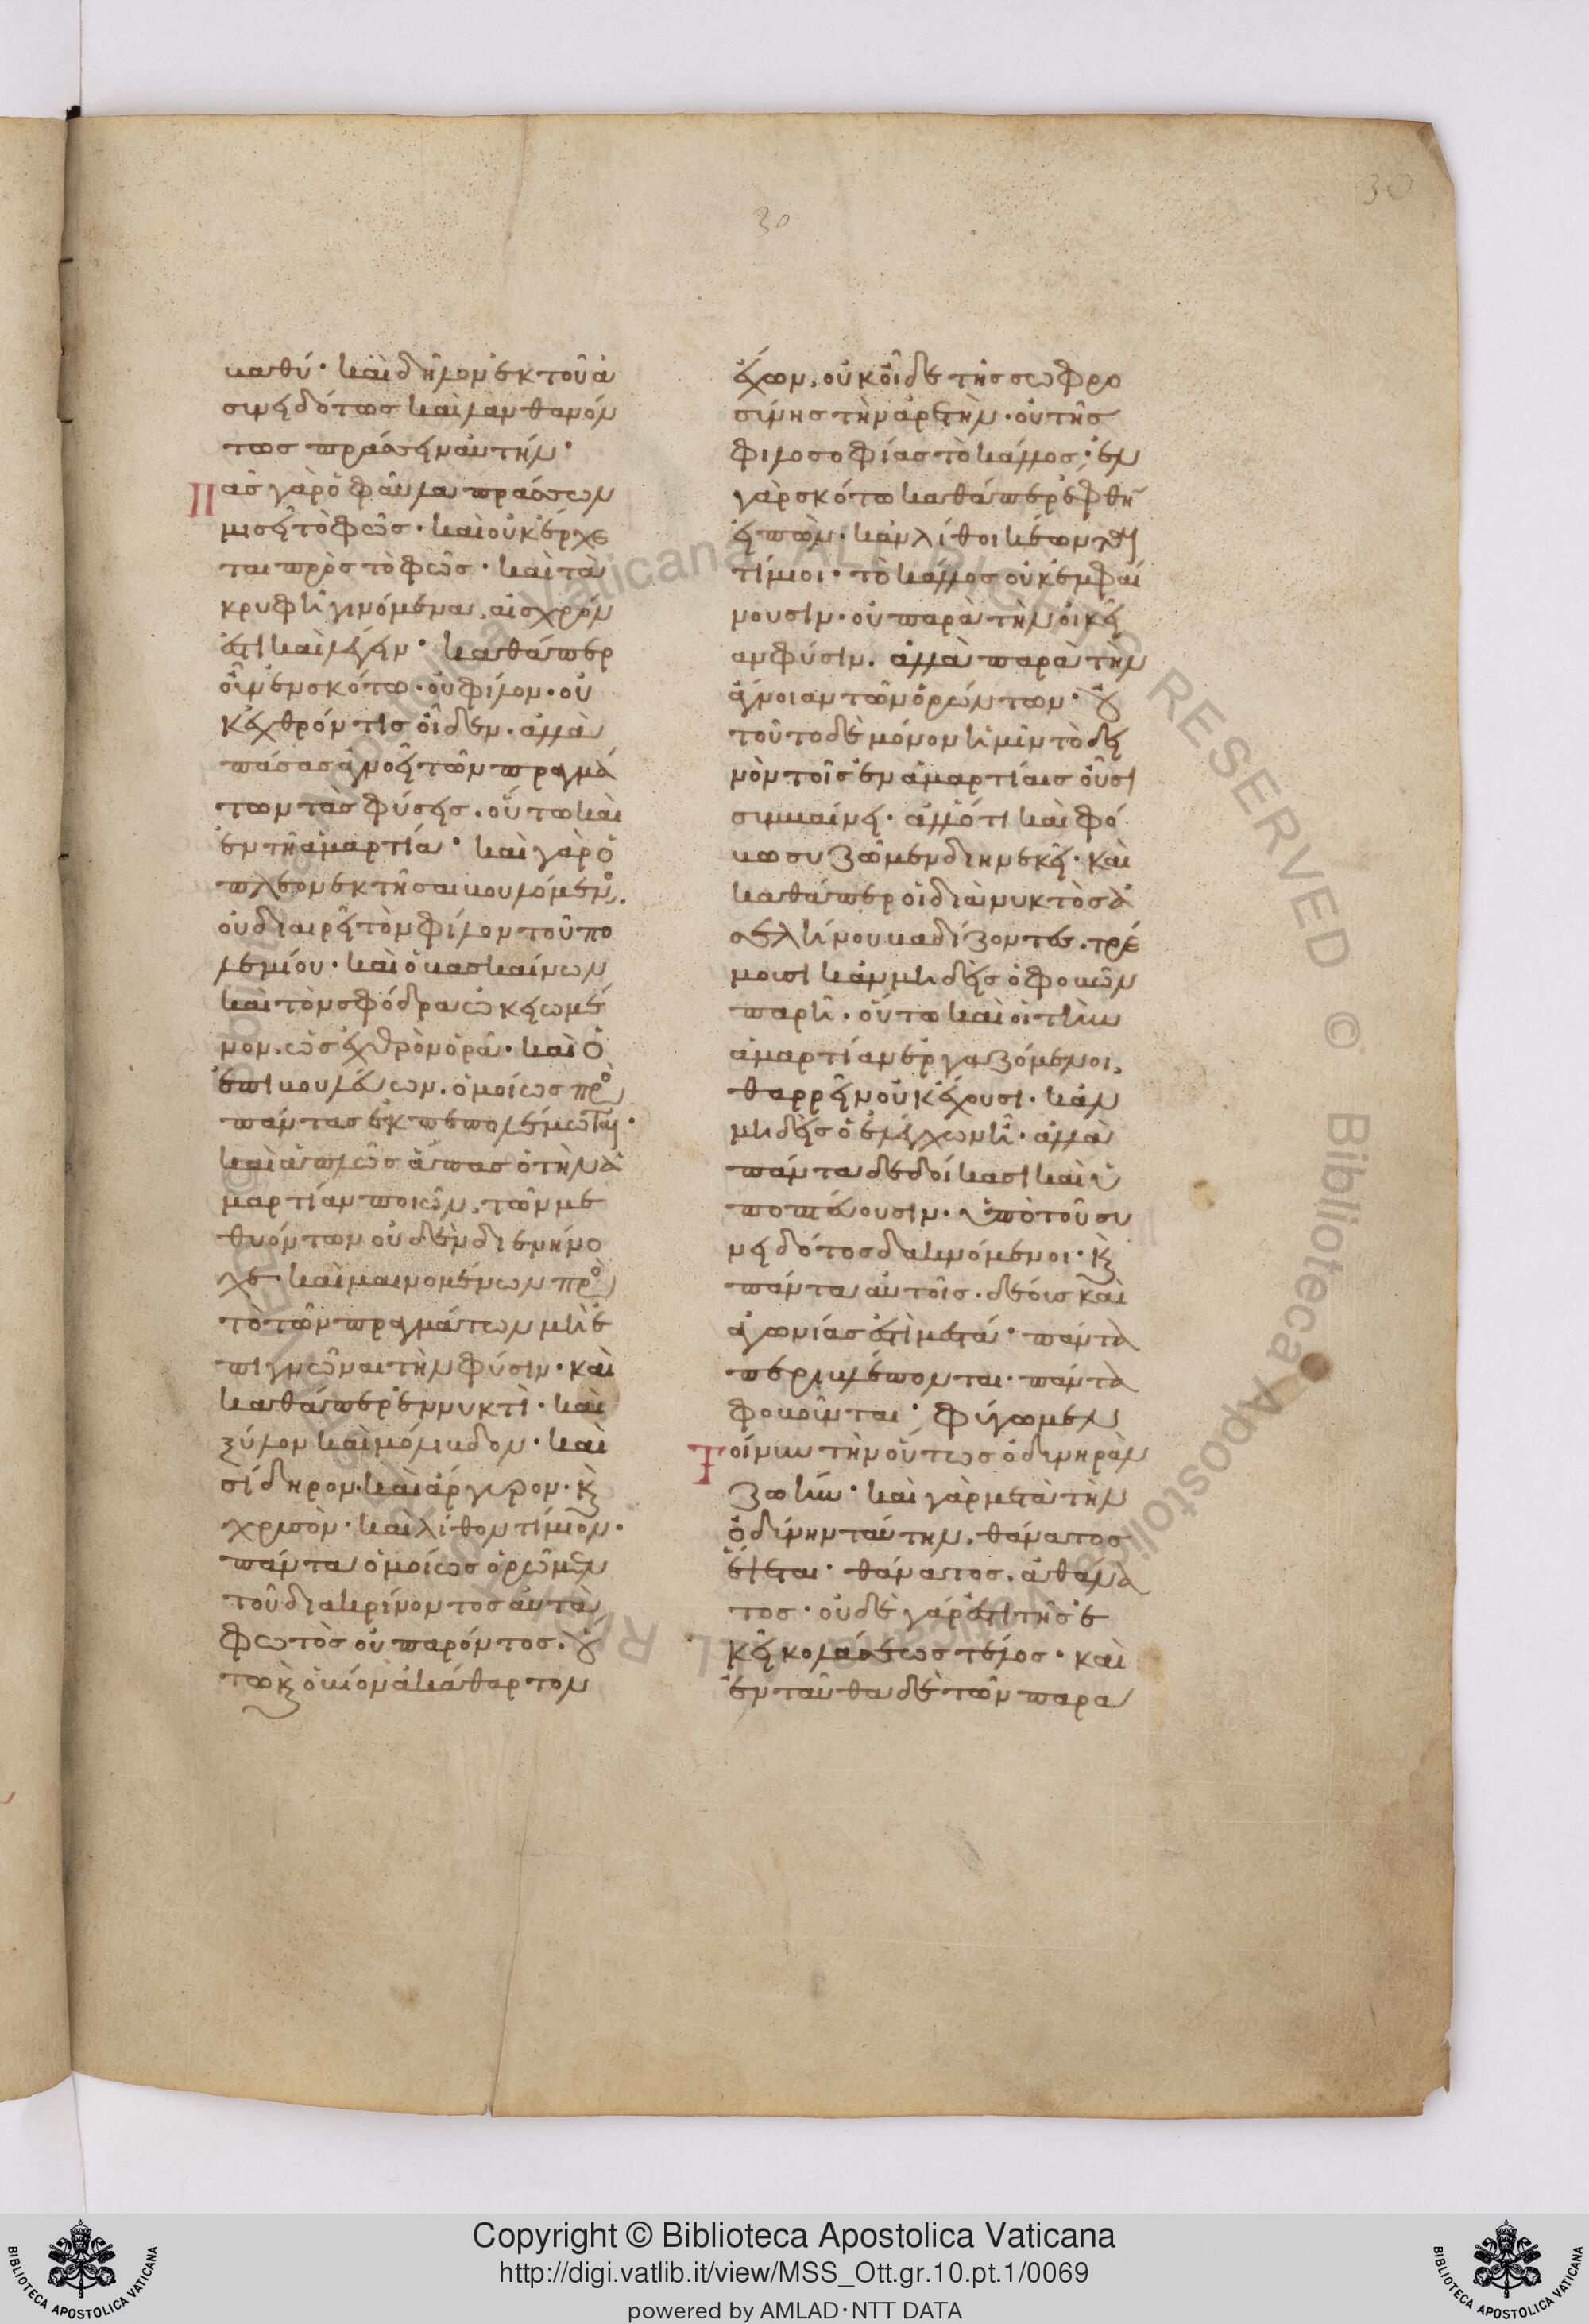 30
30
βαθύ· καὶ δῆλον ἐκ τοῦ ἀ
συνειδότως καὶ λανθανόν
τως πράσσειν αὐτήν·
Πᾶς γὰρ ὁ φαῦλα πράσσων
μισεῖ τὸ φῶς· καὶ οὐκ ἔρχε
ται πρὸς τὸ φῶς· καὶ τὰ
κρυφῆ γινόμενα, αἰσχρόν
ἐστι καὶ λέγειν· καθάπερ
οὖν ἐν σκότω· οὐ φίλον· οὐ
κ ἐχθρόν τις οἶδεν· ἀλλὰ
πάσας ἀγνοεῖ τῶν πραγμά
των τὰς φύσεις· οὕτω καὶ
ἐν τῆ ἁμαρτία· καὶ γὰρ ὁ
πλεονεκτῆσαι βουλόμενος,
οὐ διαιρεῖ τὸν φίλον τοῦ πο
λεμίου· καὶ ὁ βασκαίνων
καὶ τὸν σφόδρα ὠκειωμέ
νον, ὡς ἐχθρὸν ὁρᾶ· καὶ ὁ
ἐπιβουλεύων, ὁμοίως πρὸς
πάντας ἐκπεπολέμωται·
καὶ ἁπλῶς ἅπας ὁ τὴν ἁ
μαρτίαν ποιῶν, τῶν με
θυόντων οὐδὲν διενήνο
χε· καὶ μαινομένων πρὸς
τὸ τῶν πραγμάτων μὴ ἐ
πιγνῶναι τὴν φύσιν· καὶ
καθάπερ ἐν νυκτὶ· καὶ
ξύλον καὶ μόλιβδον· καὶ
σίδηρον· καὶ ἄργυρον· κ
χρυσὸν· καὶ λίθον τίμιον·
πάντα ὁμοίως ὁρῶμεν
τοῦ διακρίνοντος αὐτὰ
φωτὸς οὐ παρόντος· οὕ
τω κ ὁ βίον ἀκάθαρτον
ἔχων, οὐκ οἶδε τῆς σωφρο
σύνης τὴν ἀρετὴν· οὐ τῆς
φιλοσοφίας τὸ κάλλος· ἐν
γὰρ σκότω καθάπερ ἔφθην
εἰπὼν· κἂν λίθοι κέωνται
τίμιοι· τὸ κάλλος οὐκ ἐμφαί
νουσιν· οὐ παρὰ τὴν οἰκεί
αν φύσιν· ἀλλὰ παρὰ τὴν
ἄγνοιαν τῶν ὁρώντων· οὐ
τοῦτο δὲ μόνον ἡμῖν τὸ δει
νὸν τοῖς ἐν ἁμαρτίαις οὖσι
συμβαίνει· ἀλλ' ὅτι καὶ φό
βω συζῶμεν διηνεκεῖ· καὶ
καθάπερ οἱ διὰ νυκτὸς ἀ
σελήνου βαδίζοντες· τρέ
μουσι κἂν μηδεὶς ὁ φοβῶν
παρῆ· οὕτω καὶ οἱ τὴν
ἁμαρτίαν ἐργαζόμενοι,
θαρρεῖν οὐκ ἔχουσι· κἂν
μηδεὶς ὁ ἐλέγχων ἦ· ἀλλὰ
πάντα δεδοίκασι καὶ ὑ
ποπτεύουσιν· ὑπὸ τοῦ συ
νειδότος δακνόμενοι· κ
πάντα αὐτοῖς· δέους καὶ
ἀγωνίας ἐστὶ μεστά· πάντα
περιβλέπονται· πάντα
φοβοῦνται· φύγωμεν
Τοίνυν τὴν οὕτως ὀδυνηρὰν
ζωὴν· καὶ γὰρ μετὰ τὴν
ὀδύνην ταύτην, θάνατος
ἕψεται· θάνατος, ἀθάνα
τος· οὐδὲ γάρ ἐστι τῆς ἐ
κεῖ κολάσεως τέλος· καὶ
ἐνταῦθα δὲ τῶν παρα
Copyright © Biblioteca Apostolica Vaticana
http://digi.vatlib.it/view/MSS_Ott.gr.10.pt.1/0069
powered by AMLAD·NTT DATA
BIBLIOTECA APOSTOLICA VATICANA
BIBLIOTECA APOSTOLICA VATICANA